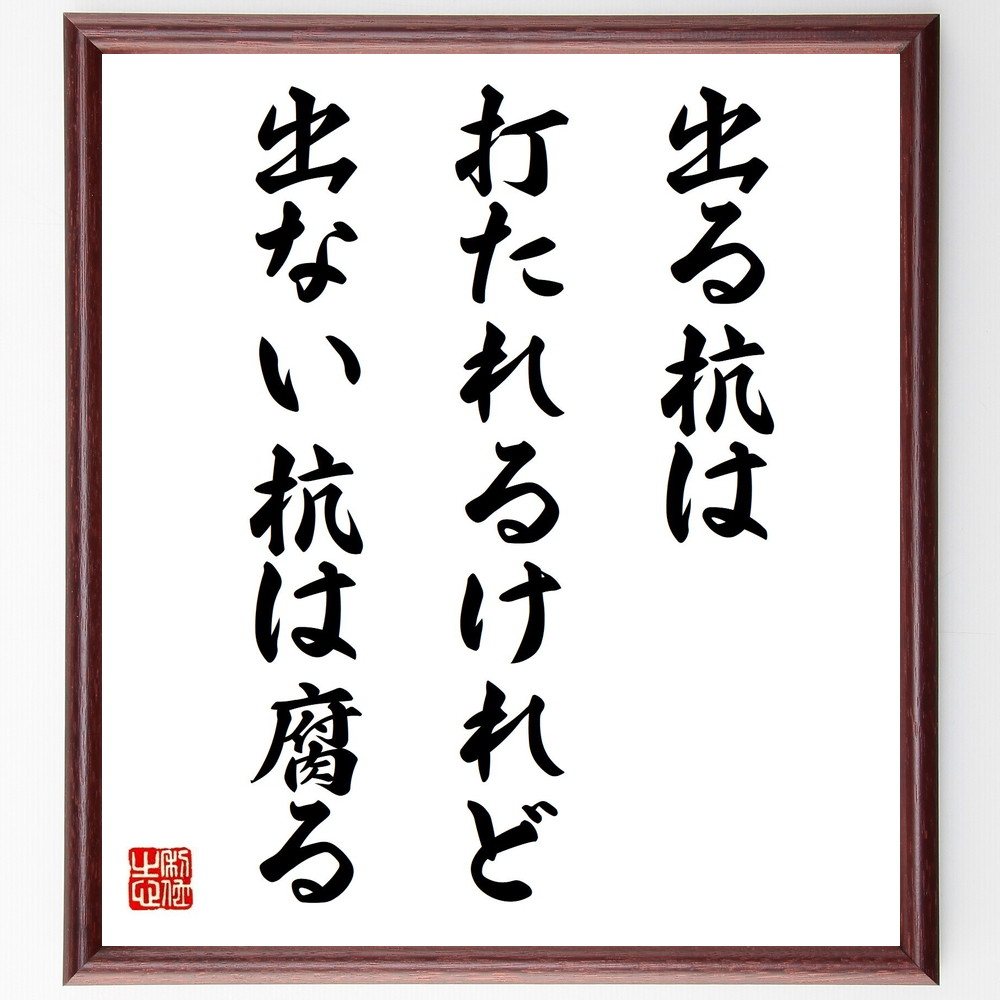 出る杭は
打たれるけれど
出ない杭は腐る